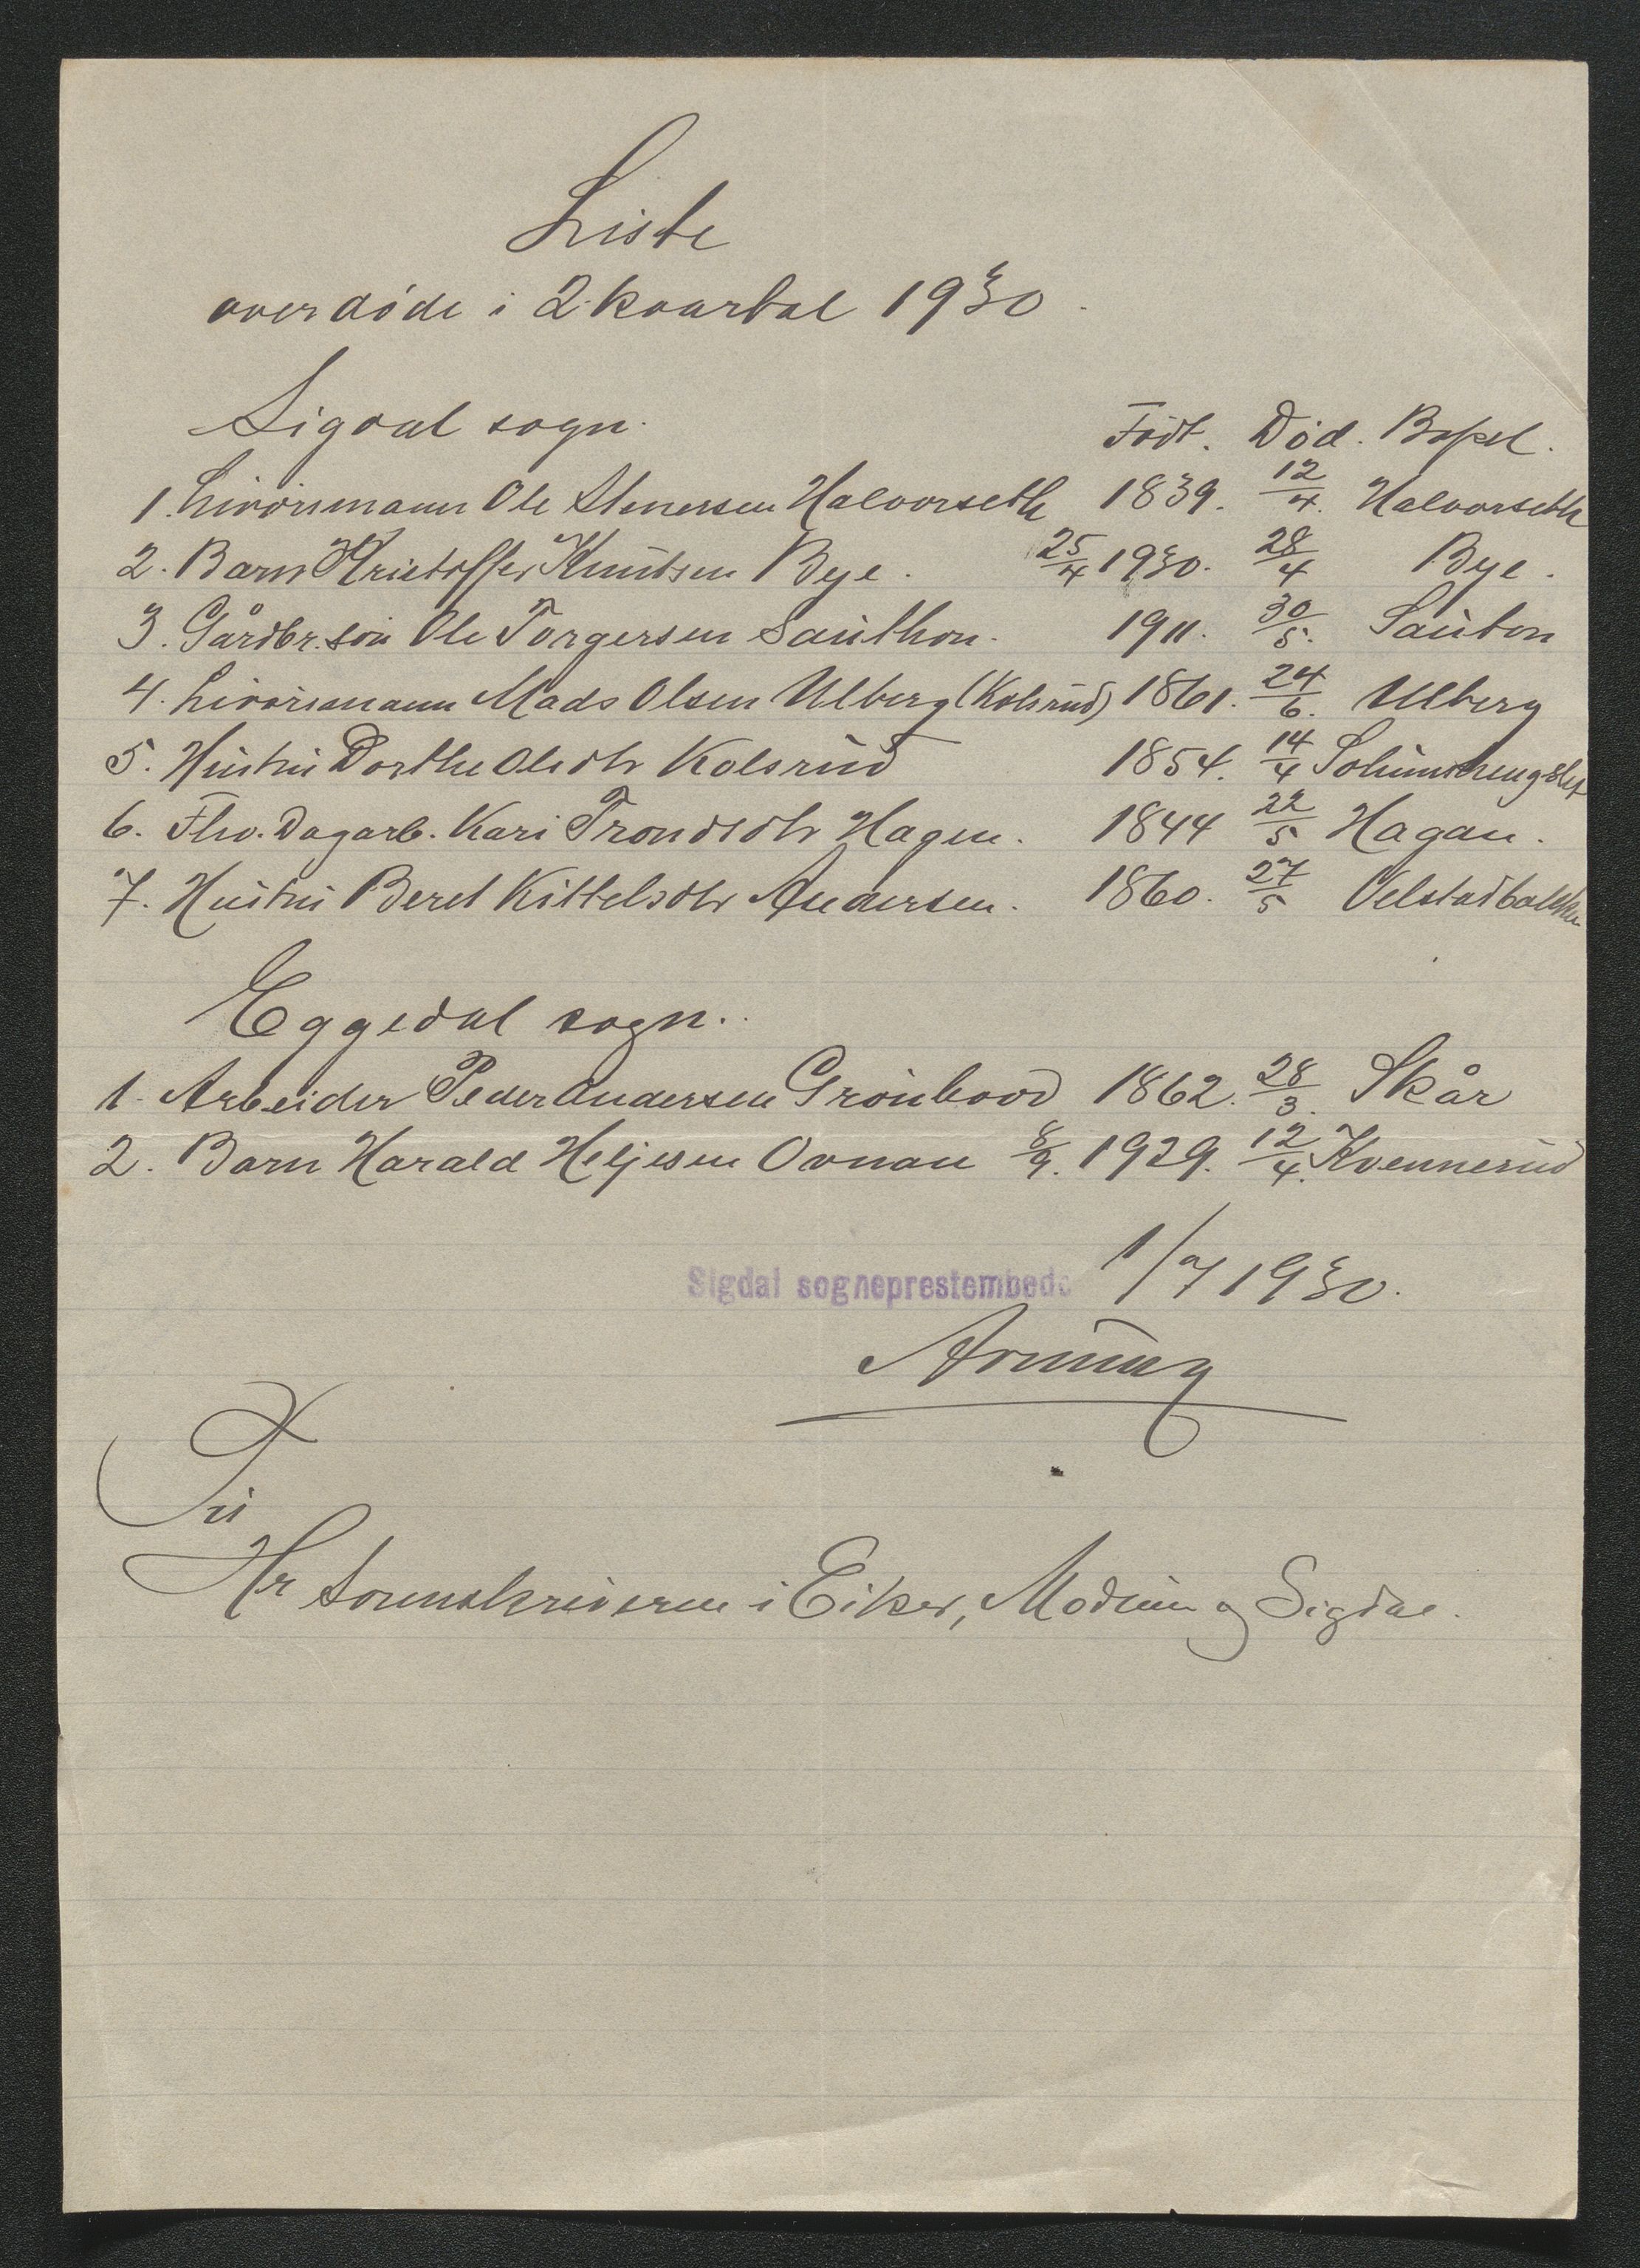 Liste
over døde i 2 kvartal 1930.
Sigdal sogn. Født. Død. Bopel.
1. Livørsmann Ole Stenersen Halvorseth 1839. 12/4. Halvorseth
2. Barn Kristoffer Knutsen Bye. 25/4 1930. 28/4 Bye.
3. Gårdbr.søn Ole Torgersen Sauthon. 1911. 30/5. Sauton
4. Livørsmann Mads Olsen Ulberg (Kolsrud) 1861. 24/6. Ulberg
5. Hustru Dorthe Olsdtr Kolsrud 1854. 14/4
6. Fhv. Dagarb. Kari Trondsdtr Hagen. 1844 22/5 Hagan.
7. Hustru Beret Kittelsdtr Andersen. 1860. 27/5
Eggedal sogn.
1. Arbeider Peder Andersen Grønhovd 1862. 28/3. Skår
2. Barn Harald Heljesen Ovnan 8/9. 1929. 12/4. Kvennerud
Sigdal sogneprestembede 1/7 1930.
Til
Hr Sorenskriveren i Eiker, Modum og Sigdal.